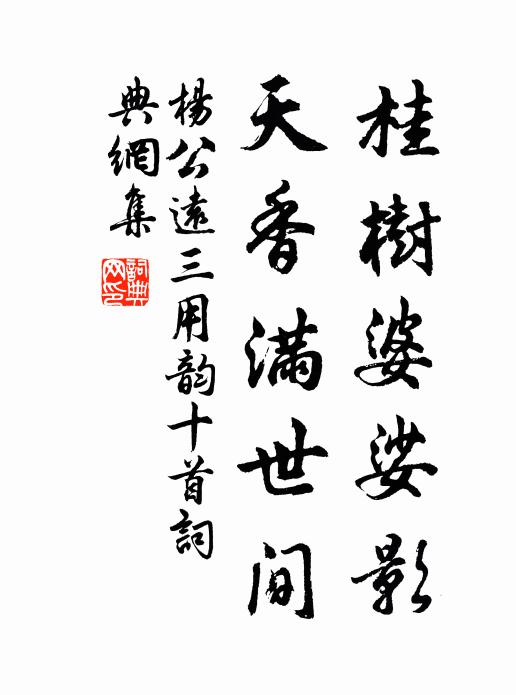 桂樹婆娑影
天香滿世間
楊公遠三用韵十首詞
典網集
詞典網印